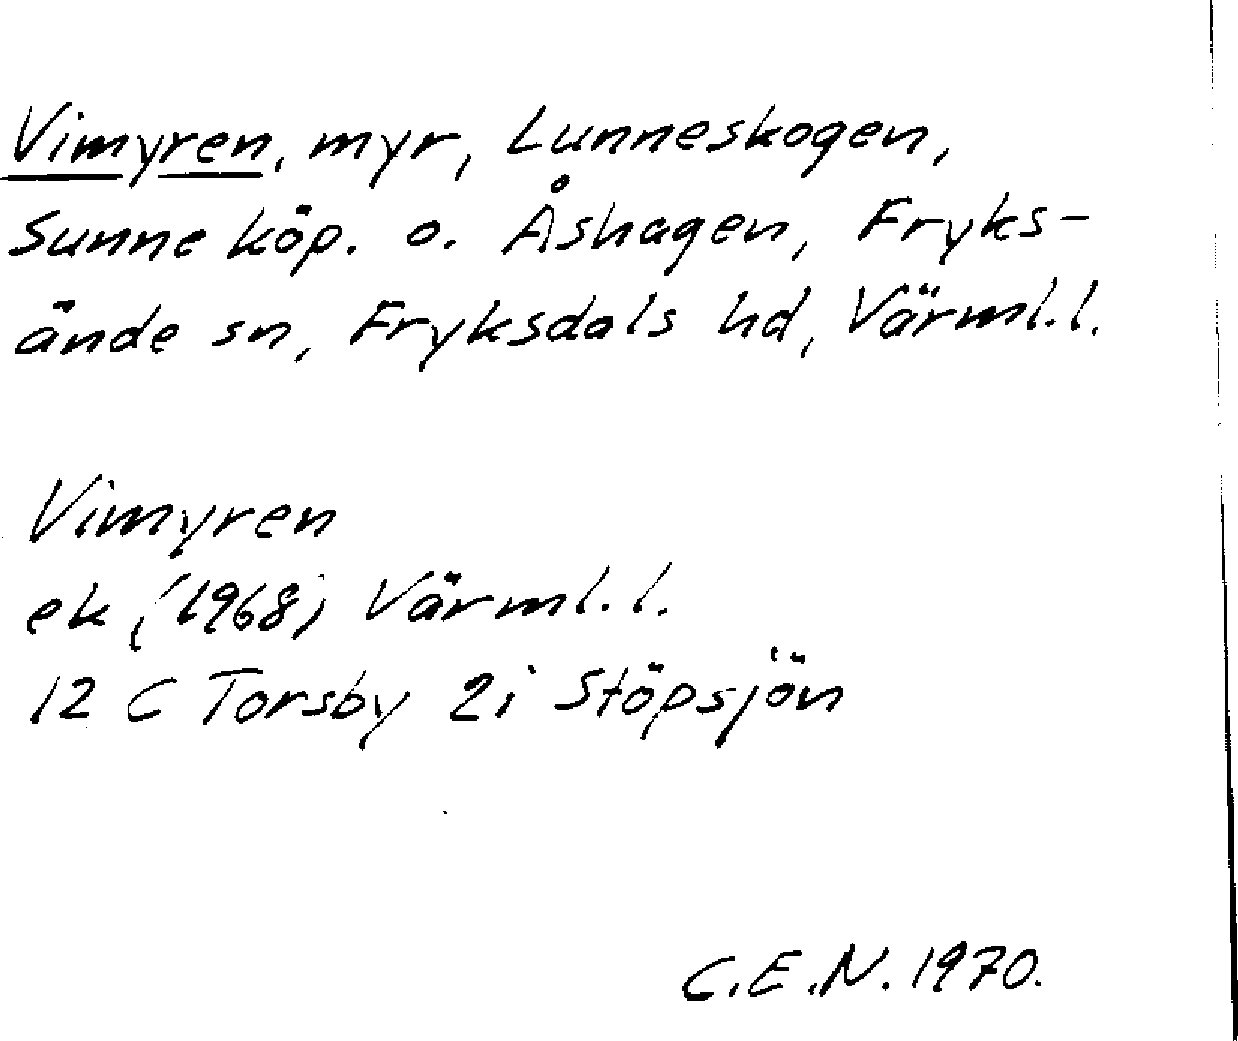 Vimyren, myr, Lunneskogen,
Sunne köp. o. Åshagen, Fryks-
ände sn, Fryksdals hd, Värml.l.
Vimyren
ek (1968) Värml.l.
12 C Torsby 2i Stöpsjön
C.E.N. 1970.